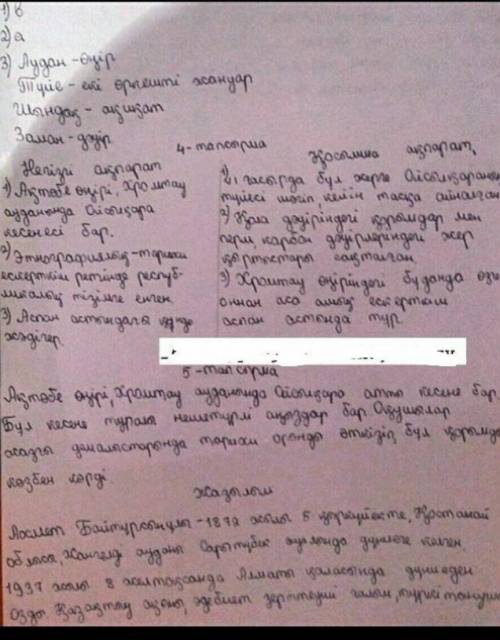 1) в
2) а
3) Аудан - өңір
Түйе - екі өркешті жануар
Шындық - ақиқат
Заман - дәуір
4 - тапсырма
Негізгі ақпарат
1) Ақтөбе өңірі, Хромтау
ауданында Айсықара
кесенесі бар.
2) Этнографиялық - тарихи
ескерткіш ретінде респуб-
ликалық тізімге енген.
3) Аспан астындағы
жәдігер.
Қосымша ақпарат.
ғасырда бұл жерге Айсықараның
түйесі шөгіп, кейін тасқа айналған
2) Юра дәуіріндегі құрымдар мен
перм, карбон дәуірлеріндегі жер
қыртыстары сақталған.
3) Хромтау өңіріндегі бұданда өзге
оннан аса ашық ескерткіш
аспан астында тұр.
5 - тапсырма
Ақтөбе өңірі, Хромтау ауданында Айсықара атты кесене бар.
Бұл кесене туралы неше түрлі аңыздар бар. Оқушылар
жазғы демалыстарында тарихи орынды өткізіп, бұл
көзбен көрді.
Жазылым
Ахмет Байтұрсынұлы - 1872 жылы 5 қыркүйекте, Қостанай
облысы, Жангелді ауданы Сарытүбек ауылында дүниеге келген.
1937 жылы 8 желтоқсанда Алматы қаласында дүниеден
озды. Қазақтың ақыны, әдебиет зерттеуші ғалым, түркітанушы